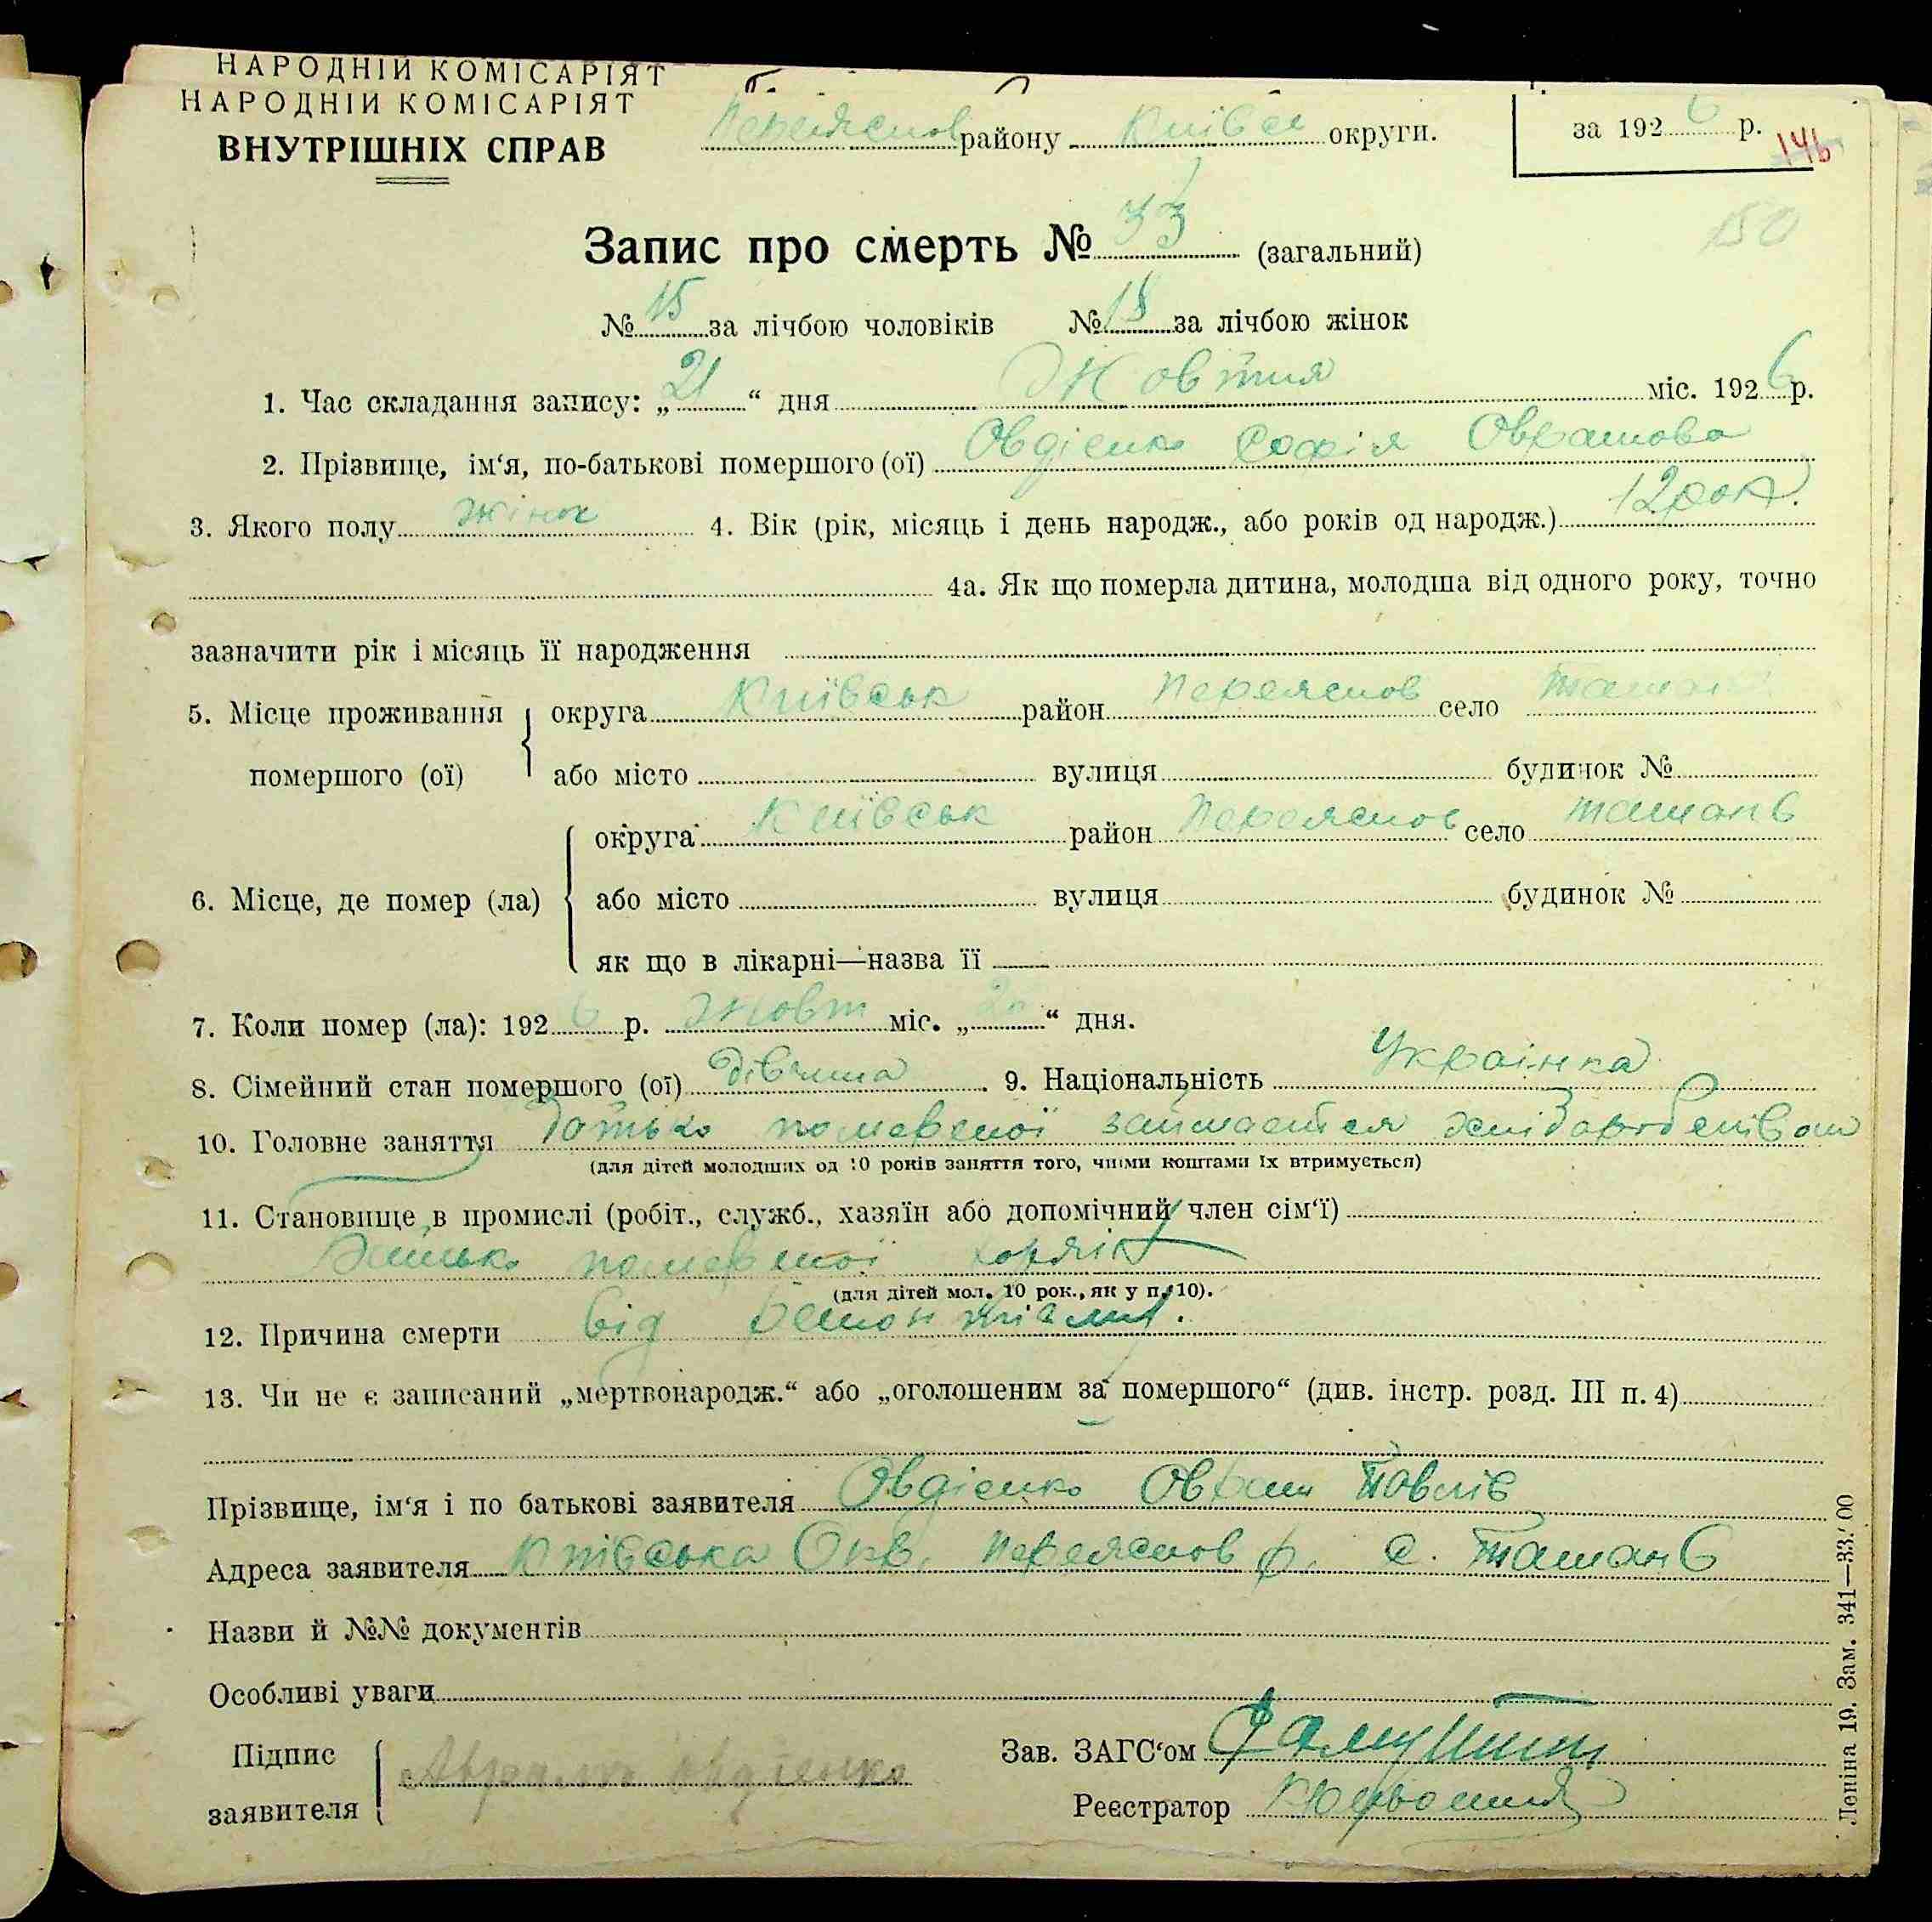 НАРОДНІЙ КОМІСАРІЯТ
НАРОДНІЙ КОМІСАРІЯТ
ВНУТРІШНІХ СПРАВ
Переяслов району Київсь округи.
за 1926 р.
146
150
Запис про смерть № 33 (загальний)
№ 15 за лічбою чоловіків № 18 за лічбою жінок
1. Час складання запису: „21“ дня Жовтня міс. 1926 р.
2. Прізвище, ім‘я, по-батькові помершого (ої) Овдієнко Софія Оврамова
3. Якого полу жінок 4. Вік (рік, місяць і день народж., або років од народж.) 12 рок.
4а. Як що померла дитина, молодша від одного року, точно
зазначити рік і місяць її народження
5. Місце проживання помершого (ої) округа Київськ район Переяслов село Ташань
або місто вулиця будинок №
6. Місце, де помер (ла) округа Київськ район Переяслов село Ташань
або місто вулиця будинок №
як що в лікарні—назва її
7. Коли помер (ла): 1926 р. Жовт міс. „20“ дня.
8. Сімейний стан помершого (ої) дівчина 9. Національність Украінка
10. Головне заняття Батько помершої займається
(для дітей молодших од 10 років заняття того, чиїми коштами їх втримується)
11. Становище в промислі (робіт., служб., хазяїн або допомічний член сім‘ї)
Батько помершої хазяін
(для дітей мол. 10 рок., як у п. 10).
12. Причина смерти від
13. Чи не є записаний „мертвонародж.“ або „оголошеним за помершого“ (див. інстр. розд. III п. 4)
Прізвище, ім‘я і по батькові заявителя Овдієнко Оврам Павлів
Адреса заявителя Київська Окр. Переяслов р. с. Ташань
Назви й №№ документів
Особливі уваги
Підпис заявителя Аврам Овдіенко
Зав. ЗАГС‘ом
Реєстратор
Леніна 19. Зам. 341—33.'00